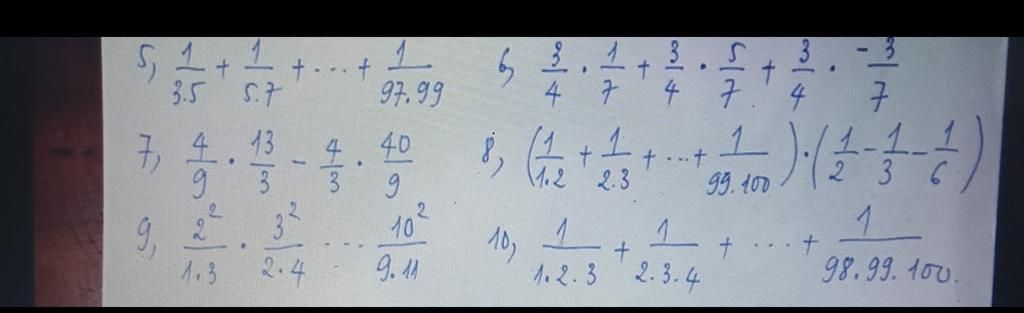 5, 1/3.5 + 1/5.7 + ... + 1/97.99
6, 3/4 · 1/7 + 3/4 · 5/7 + 3/4 · -3/7
7, 4/9 · 13/3 - 4/3 · 40/9
8, (1/1.2 + 1/2.3 + ... + 1/99.100) · (1/2 - 1/3 - 1/6)
9, 2²/1.3 · 3²/2.4 ... 10²/9.11
10, 1/1.2.3 + 1/2.3.4 + ... + 1/98.99.100.